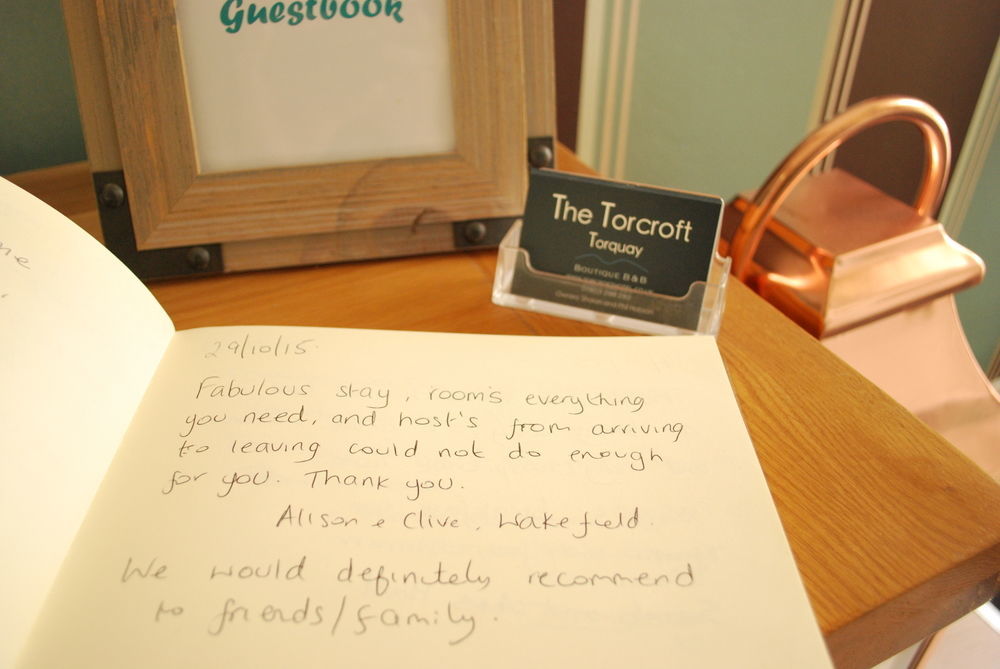 Guestbook
The Torcroft
Torquay
BOUTIQUE B&B
ne
29/10/15.
Fabulous stay, room's everything
you need, and host's from arriving
to leaving could not do enough
for you. Thank you.
Alison e Clive, Wakefield.
We would definitely recommend
to friends/family.